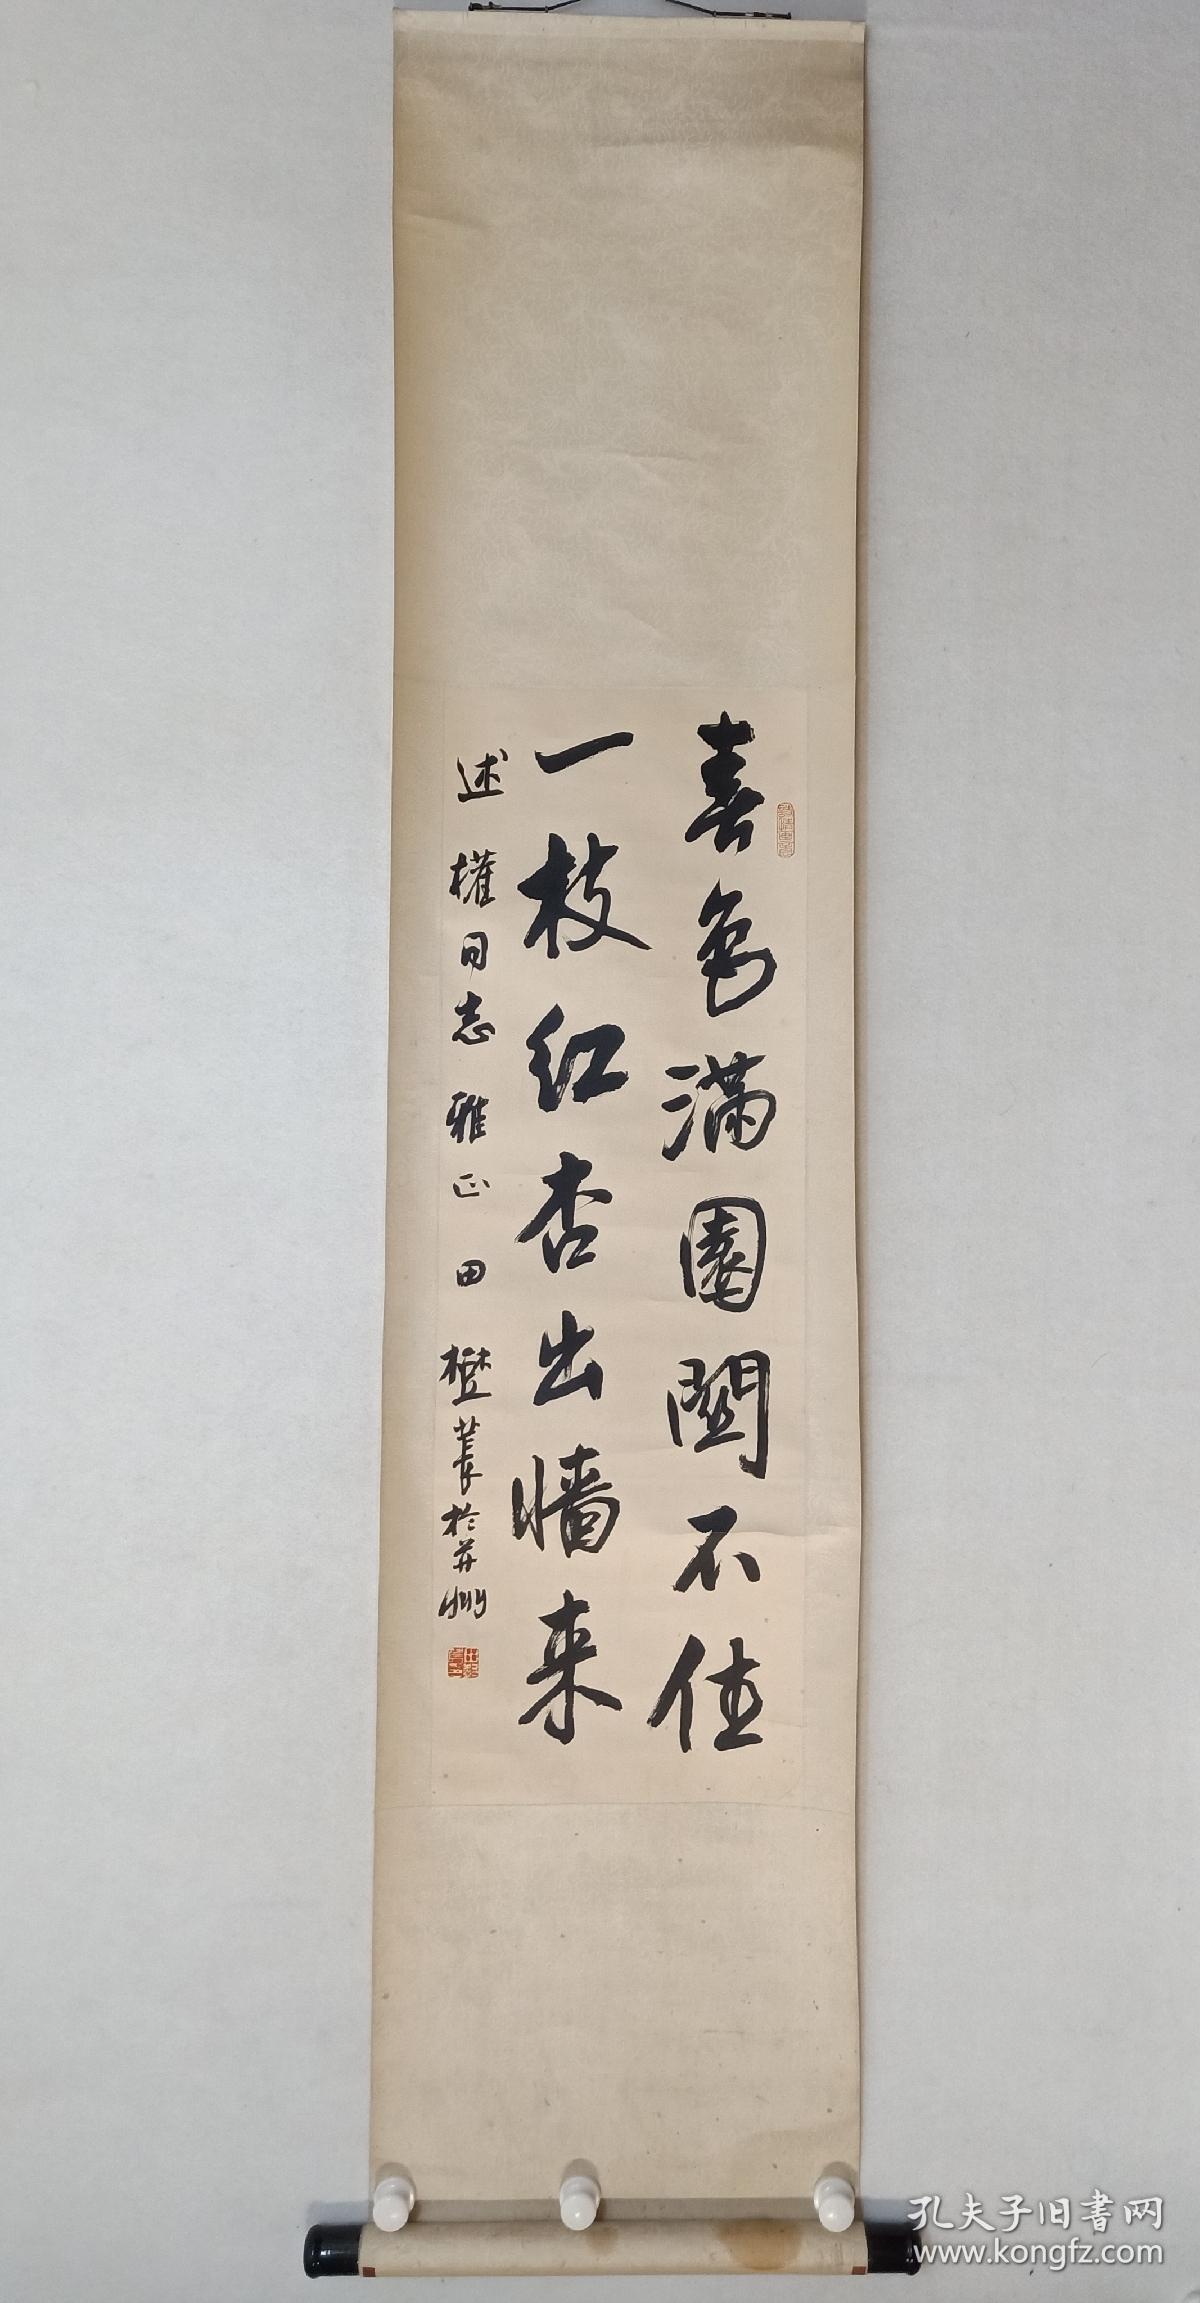 喜色满園関不住
一枝红杏出墙来
述權同志雅正田樹萇於并州
孔夫子旧书网
www.kongfz.com